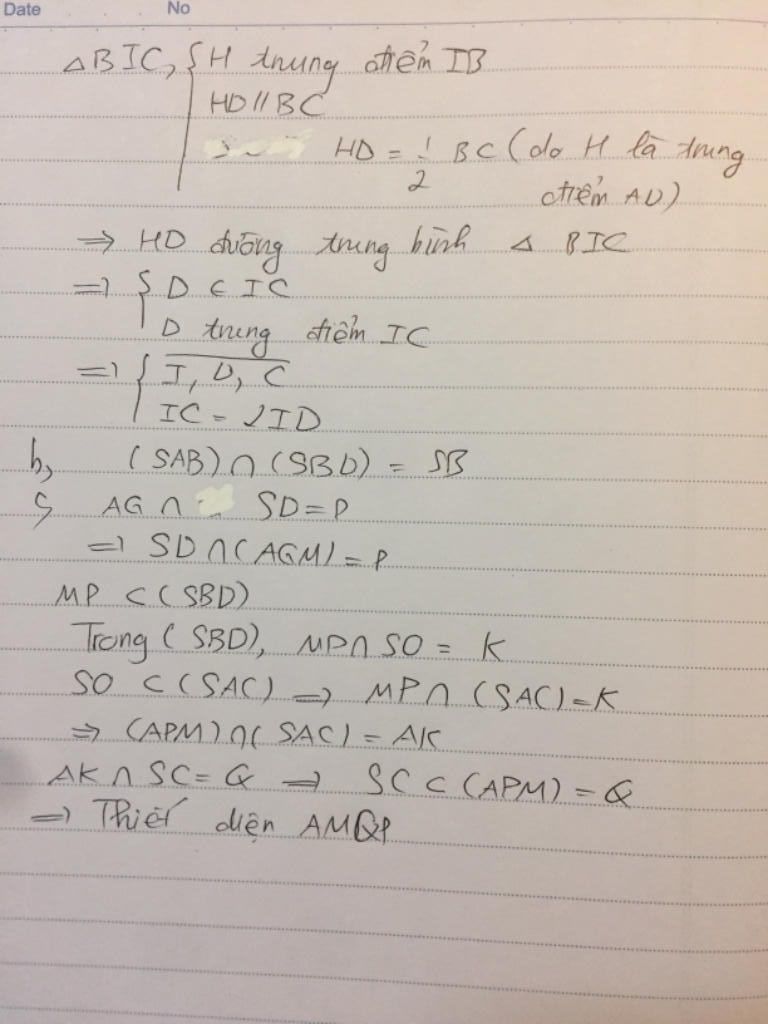 Date No
△BIC, { H trung điểm IB
HD // BC
HD = 1/2 BC (do H là trung
điểm AD)
⇒ HD đường trung bình △ BIC
⇒ { D ∈ IC
D trung điểm IC
⇒ { I, D, C
IC = 2ID
b, (SAB) ∩ (SBD) = SB
c, AG ∩ SD = P
⇒ SD ∩ (AGM) = P
MP ⊂ (SBD)
Trong (SBD), MP ∩ SO = K
SO ⊂ (SAC) ⇒ MP ∩ (SAC) = K
⇒ (APM) ∩ (SAC) = AK
AK ∩ SC = Q ⇒ SC ⊂ (APM) = Q
⇒ Thiết diện AMQP